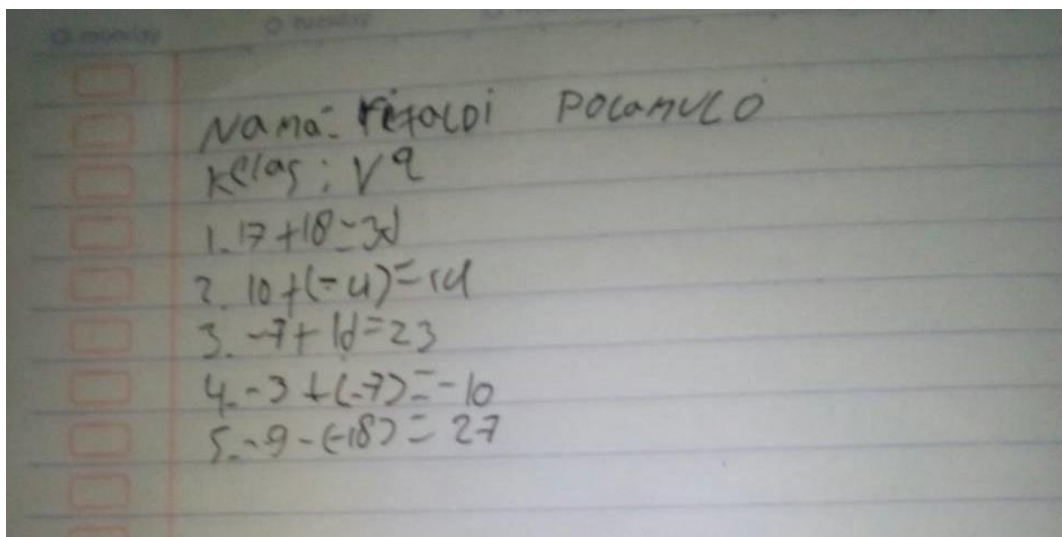 monday tuesday
Nama: Pocamuco
Kelas: V a
1. 17+18=35
2. 10+(-4)=14
3. -7+16=23
4. -3+(-7)=-10
5. -9-(-18)=27